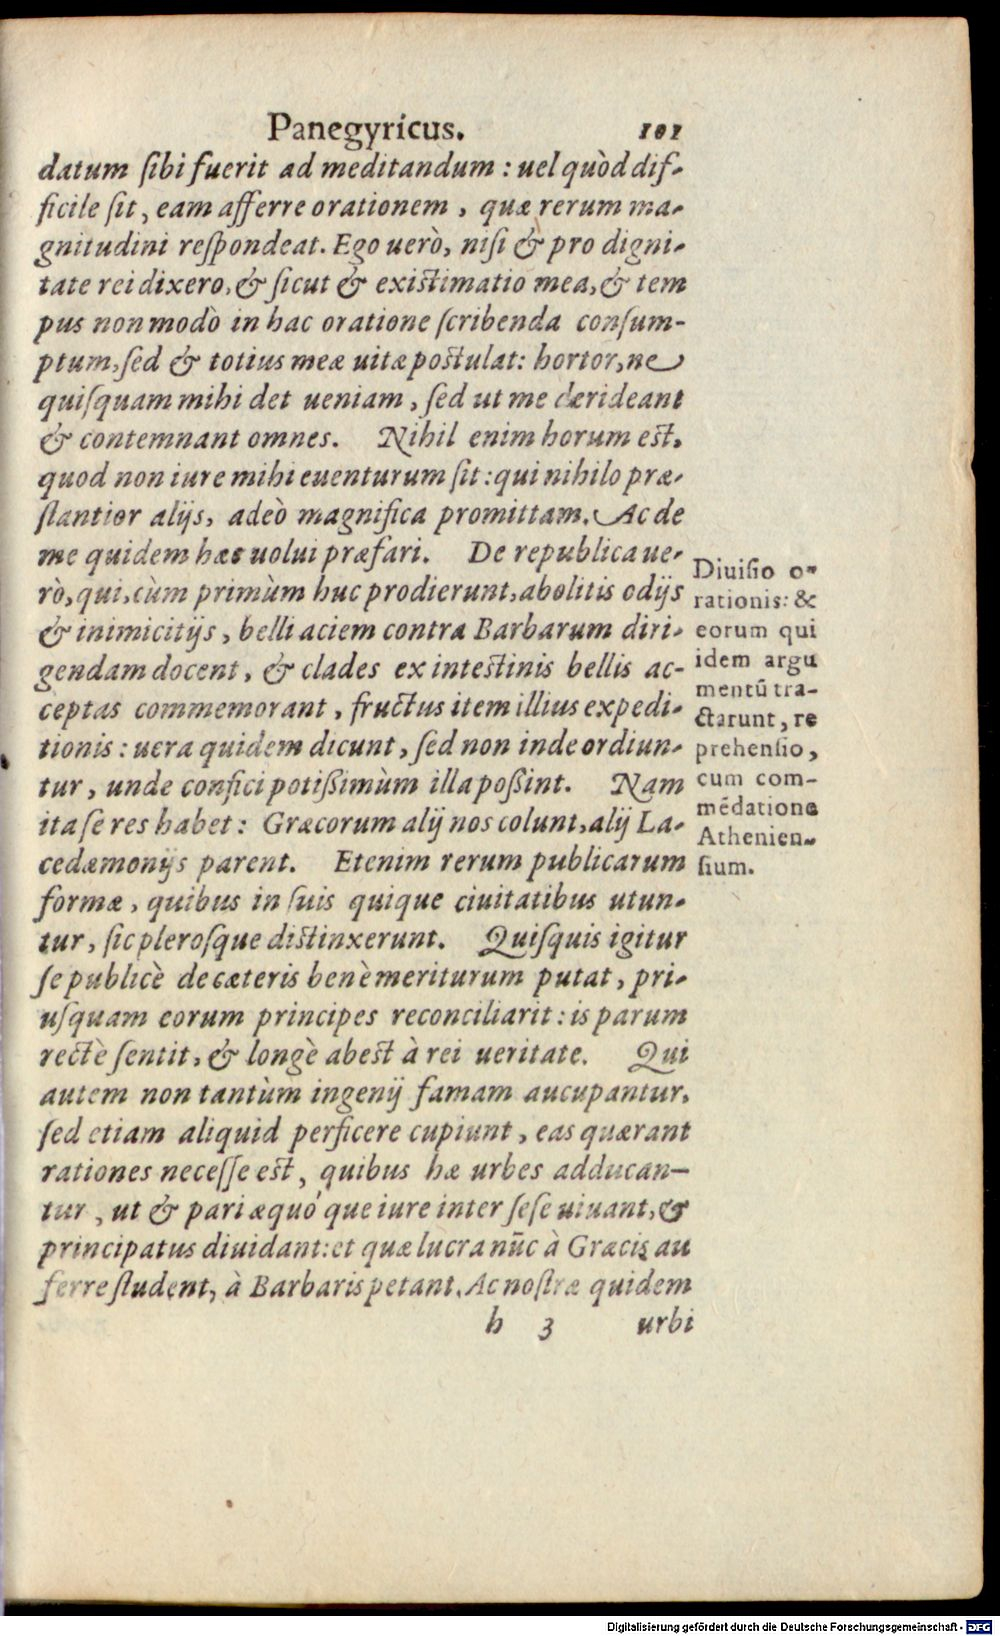 Panegyricus. 101
datum ſibi fuerit ad meditandum : uel quòd dif-
ficile ſit, eam afferre orationem, quæ rerum ma-
gnitudini reſpondeat. Ego uerò, niſi & pro digni-
tate rei dixero, & ſicut & exiſtimatio mea, & tem
pus non modò in hac oratione ſcribenda conſum-
ptum, ſed & totius meæ uitæ poſtulat: hortor, ne
quiſquam mihi det ueniam, ſed ut me derideant
& contemnant omnes. Nihil enim horum eſt,
quod non iure mihi euenturum ſit : qui nihilo præ-
ſtantior alijs, adeò magnifica promittam. Ac de
me quidem hæc uolui præfari. De republica ue-
rò, qui, cùm primùm huc prodierunt, abolitis odijs
& inimicitijs, belli aciem contra Barbarum diri-
gendam docent, & clades ex inteſtinis bellis ac-
ceptas commemorant, fructus item illius expedi-
tionis : uera quidem dicunt, ſed non inde ordiun-
tur, unde confici potißimùm illa poßint. Nam
ita ſe res habet: Græcorum alij nos colunt, alij La-
cedæmonijs parent. Etenim rerum publicarum
formæ, quibus in ſuis quique ciuitatibus utun-
tur, ſic pleroſque diſtinxerunt. Quiſquis igitur
ſe publicè de cæteris benè meriturum putat, pri-
uſquam eorum principes reconciliarit : is parum
rectè ſentit, & longè abeſt à rei ueritate. Qui
autem non tantùm ingenij famam aucupantur,
ſed etiam aliquid perficere cupiunt, eas quærant
rationes neceſſe eſt, quibus hæ urbes adducan-
tur, ut & pari æquó que iure inter ſeſe uiuant, &
principatus diuidant: et quæ lucra nūc à Græcis au
ferre ſtudent, à Barbaris petant. Ac noſtræ quidem
h 3 urbi
Diuiſio o-
rationis: &
eorum qui
idem argu
mentū tra-
ctarunt, re
prehenſio,
cum com-
mēdatione
Athenien-
ſium.
Digitalisierung gefördert durch die Deutsche Forschungsgemeinschaft - DFG